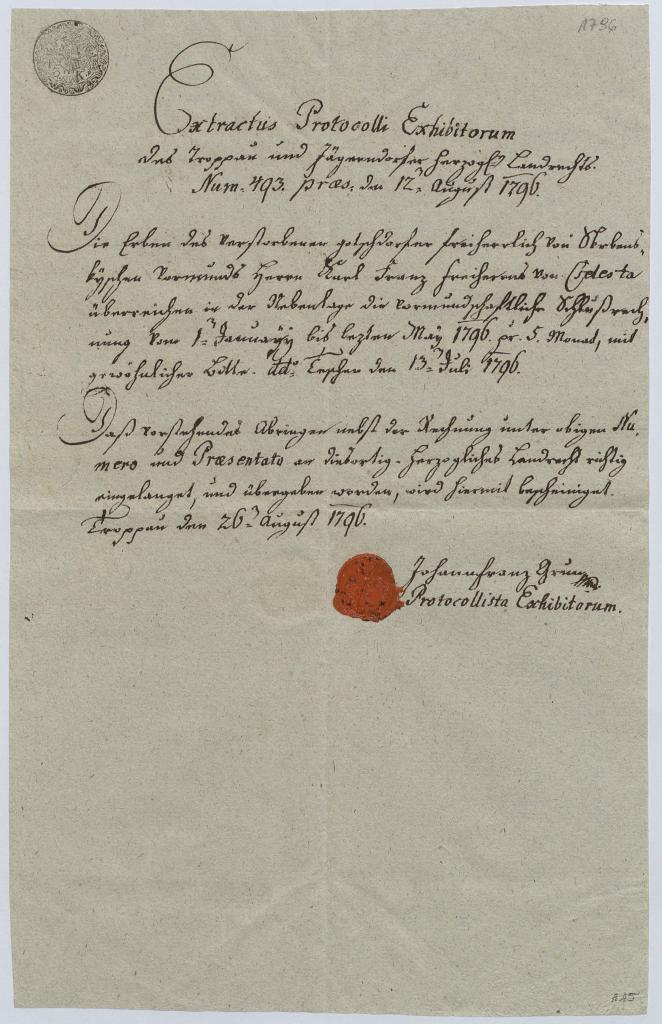 1796
Extractus Protocolli Exhibitorum
des Troppau und Jägerndorfer Herzogl. Landrechts.
Num. 493. præs. den 12ten August 1796.
Die Erben des verstorbenen gotschdorfer freiherrlich von Skrbens-
kyschen Vormunds Herrn Karl Franz Freiherrns von
überreichen in der Nebenlage die vormundschaftliche Schlußrech-
nung vom 1ten Januarÿ bis lezten Maÿ 1796. pr. 5. Monat, mit
gewöhnlicher Bitte. ddo Teschen den 13ten Juli 1796.
Daß vorstehendes Anbringen nebst der Rechnung unter obigen Nu-
mero und Præsentato an diesortig-Herzogliches Landrecht richtig
eingelanget, und übergeben worden, wird hiermit bescheiniget.
Troppau den 26ten August 1796.
Johann Franz
Protocollista Exhibitorum.